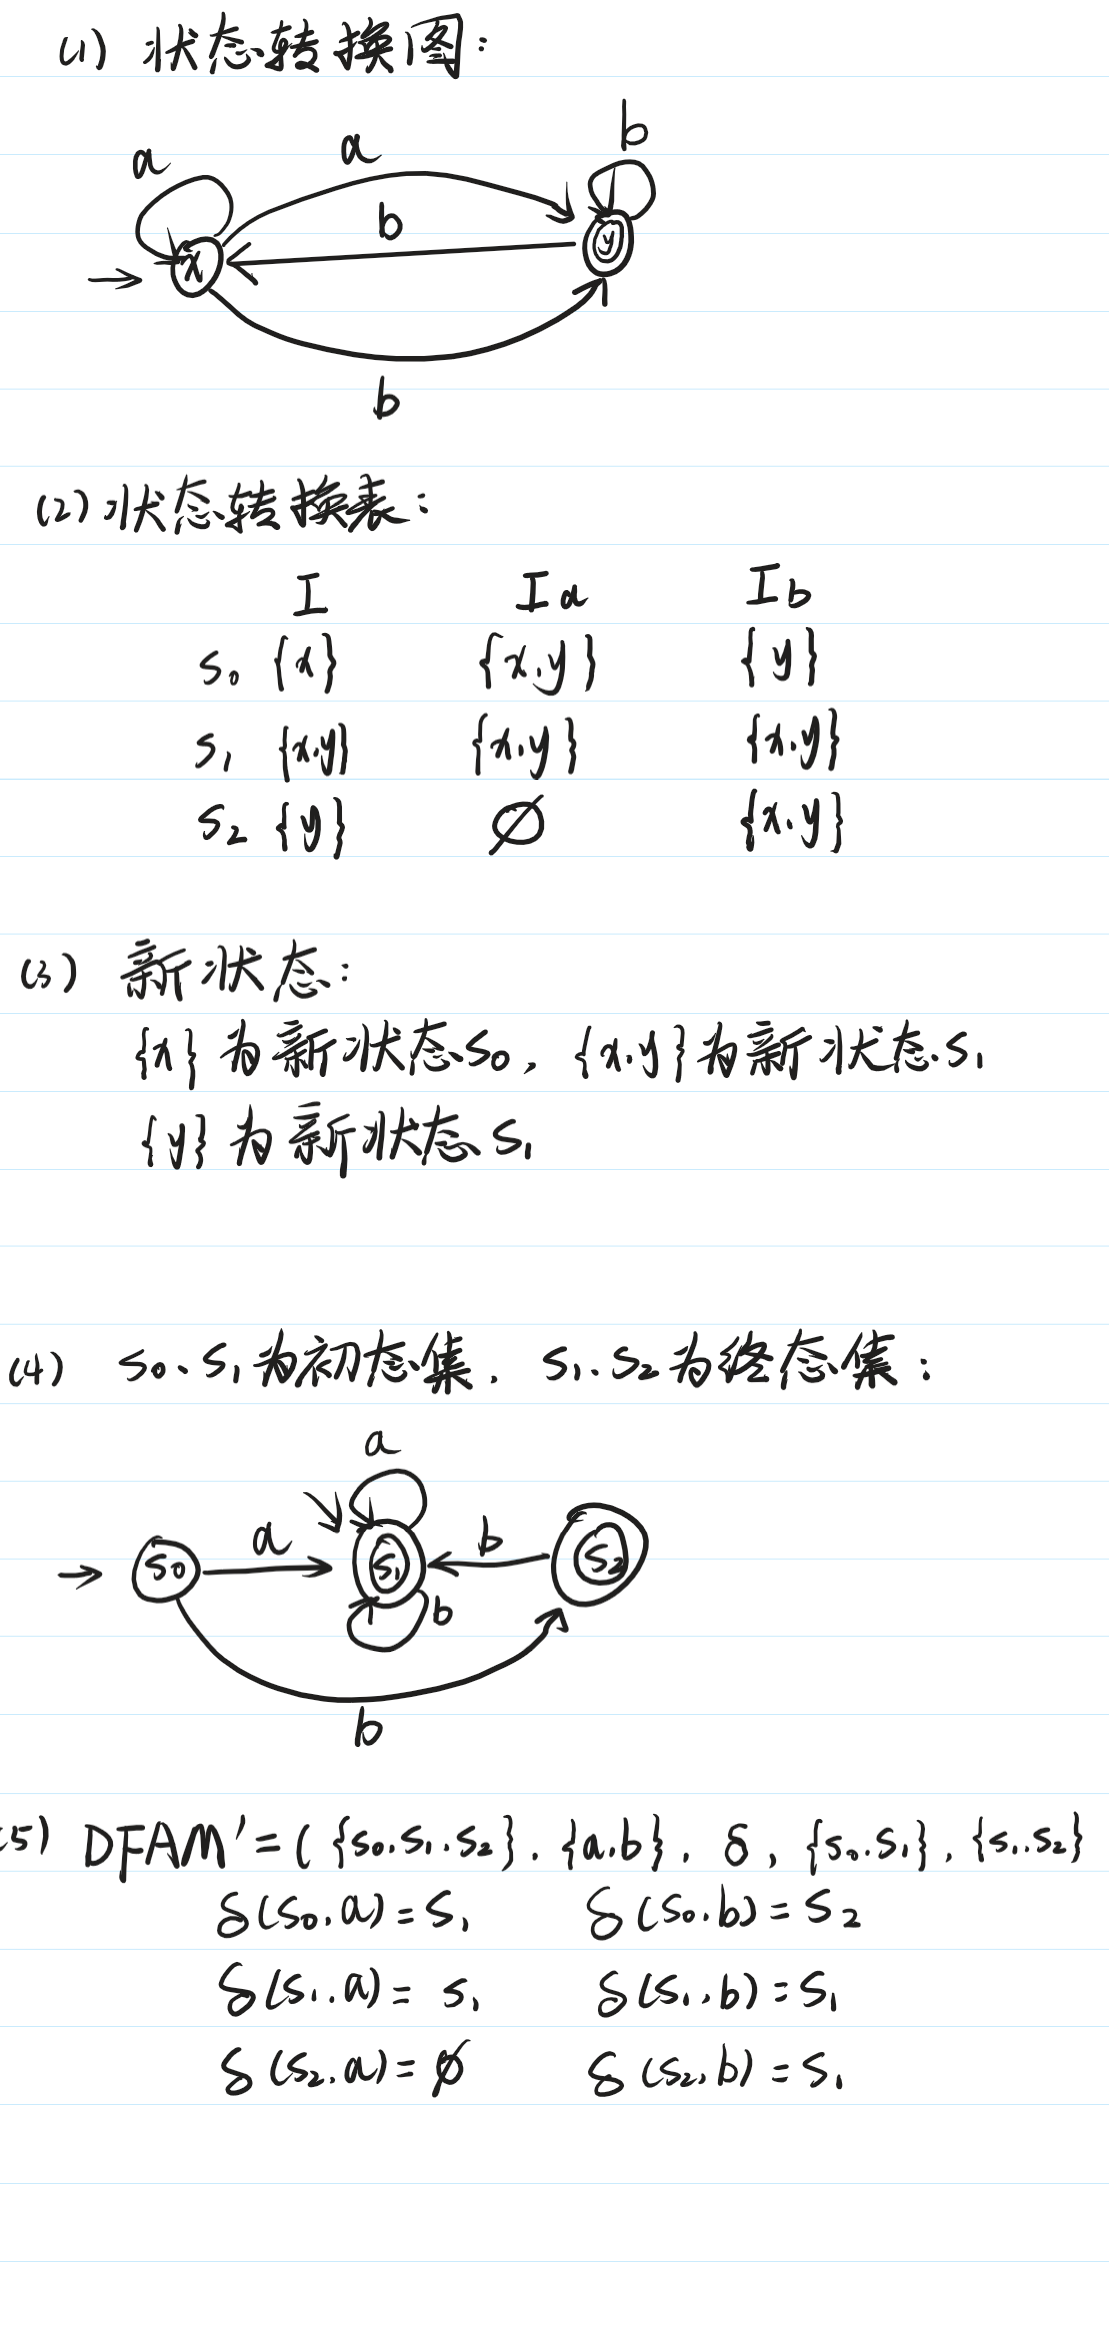 (1) 状态转换图:
b
a a
b
x y
b
(2) 状态转换表:
I Ia Ib
S0 {x} {x.y} {y}
S1 {x.y} {x.y} {x.y}
S2 {y} ∅ {x.y}
(3) 新状态:
{x} 为新状态S0, {x.y}为新状态S1
{y} 为新状态S1
(4) S0、S1为初态集, S1、S2为终态集:
a
a b
S0 S1 S2
b
b
(5) DFAM'=( {S0.S1.S2}, {a.b}, δ, {S0.S1}, {S1.S2}
δ(S0.a)=S1 δ(S0.b)=S2
δ(S1.a)= S1 δ(S1.b)=S1
δ(S2.a)=∅ δ(S2,b)=S1